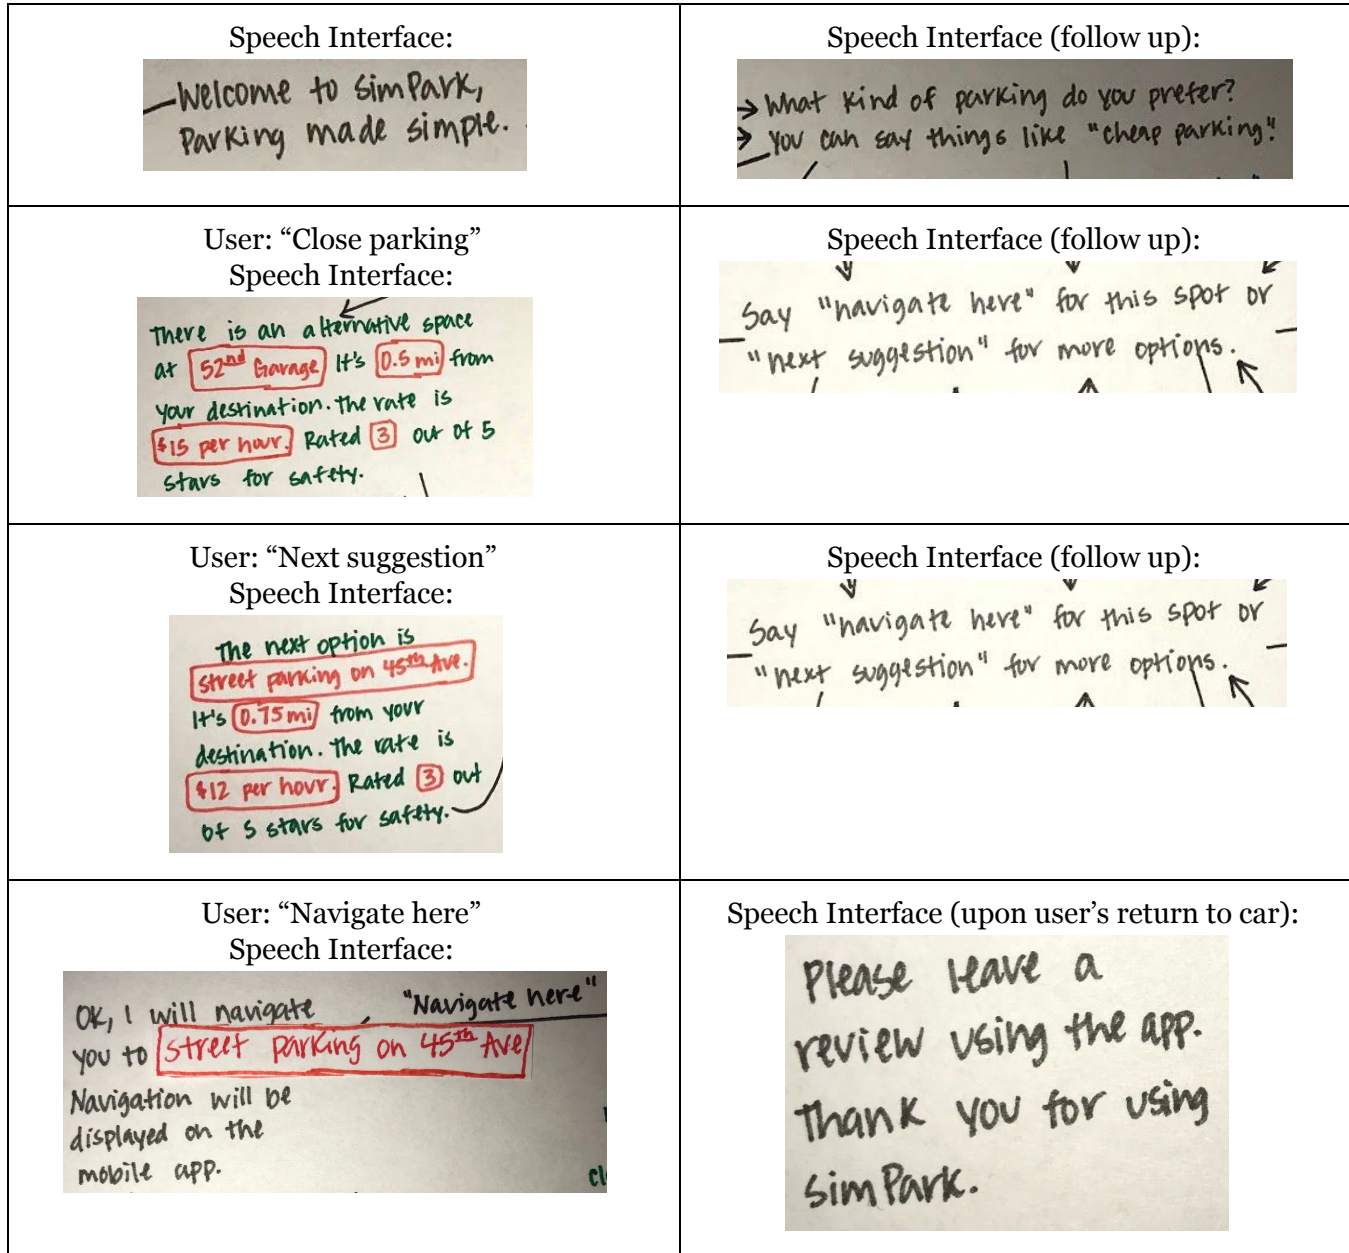 Speech Interface:
Welcome to SimPark,
Parking made simple.
Speech Interface (follow up):
What kind of parking do you prefer?
You can say things like "cheap parking"!
User: “Close parking”
Speech Interface:
There is an alternative space
at 52nd Garage It's 0.5 mi from
your destination. The rate is
$15 per hour. Rated 3 out of 5
stars for safety.
Speech Interface (follow up):
Say "navigate here" for this spot or
"next suggestion" for more options.
User: “Next suggestion”
Speech Interface:
The next option is
street parking on 45th Ave.
It's 0.75 mi from your
destination. The rate is
$12 per hour. Rated 3 out
of 5 stars for safety.
Speech Interface (follow up):
Say "navigate here" for this spot or
"next suggestion" for more options.
User: “Navigate here”
Speech Interface:
"Navigate here"
OK, I will navigate
you to street parking on 45th Ave
Navigation will be
displayed on the
mobile app.
Speech Interface (upon user’s return to car):
Please leave a
review using the app.
Thank you for using
SimPark.